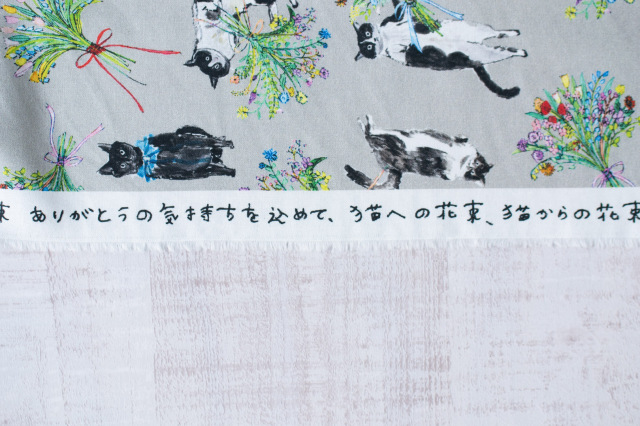 束 ありがとうの気持ちを込めて、猫への花束、猫からの花束